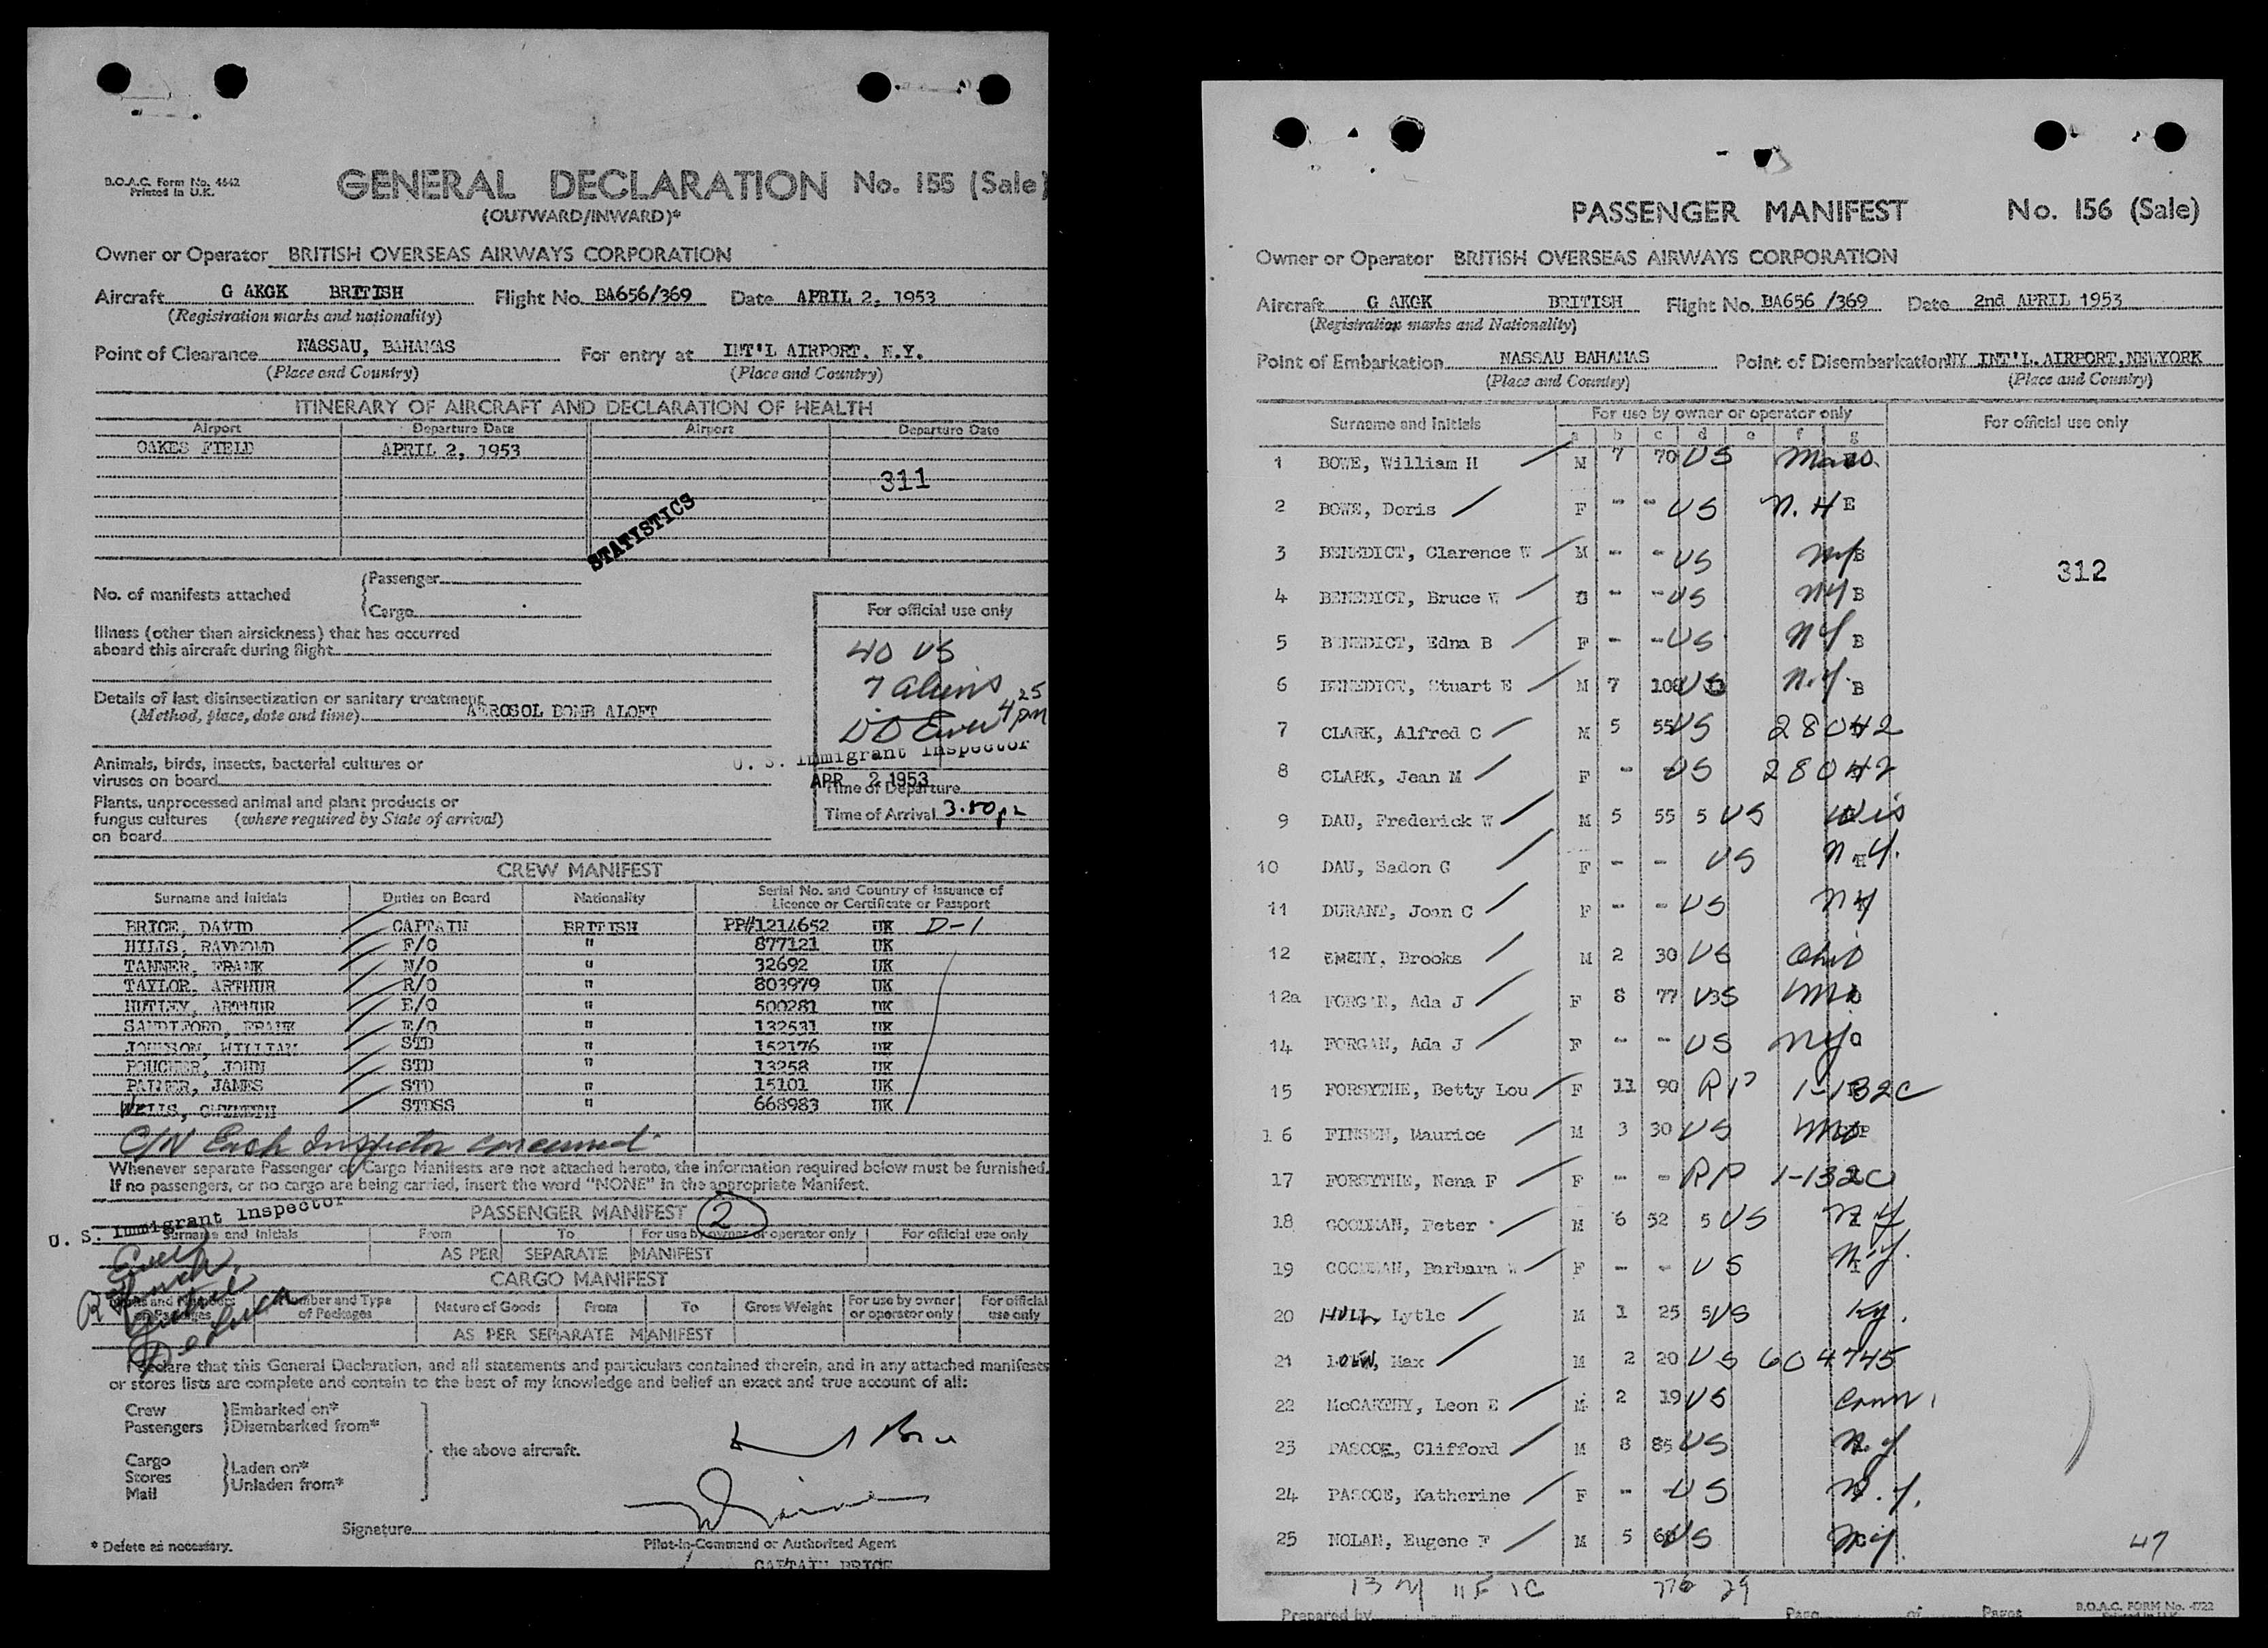 B.O.A.C. Form No. 4642
Printed in U.K.
GENERAL DECLARATION No. 155 (Sale)
(OUTWARD/INWARD)*
Owner or Operator BRITISH OVERSEAS AIRWAYS CORPORATION
Aircraft G AKGK BRITISH Flight No. BA656/369 Date APRIL 2, 1953
(Registration marks and nationality)
Point of Clearance NASSAU, BAHAMAS For entry at INT'L AIRPORT. N.Y.
(Place and Country) (Place and Country)
ITINERARY OF AIRCRAFT AND DECLARATION OF HEALTH
Airport Departure Date Airport Departure Date
OAKES FIELD APRIL 2, 1953
311
STATISTICS
No. of manifests attached {Passenger
{Cargo
For official use only
Illness (other than airsickness) that has occurred
aboard this aircraft during flight
40 US
7 aliens
4 25 pm
Details of last disinsectization or sanitary treatment
(Method, place, date and time) AEROSOL BOMB ALOFT
U. S. Immigrant Inspector
Animals, birds, insects, bacterial cultures or
viruses on board
APR 2 1953
Time of Departure
Plants, unprocessed animal and plant products or
fungus cultures (where required by State of arrival)
on board
Time of Arrival 3.50p
CREW MANIFEST
Surname and Initials Duties on Board Nationality Serial No. and Country of Issuance of
Licence or Certificate or Passport
BRICE, DAVID CAPTAIN BRITISH PP#1214652 UK D-1
HILLS, RAYMOND F/O " 877121 UK
TANNER, FRANK N/O " 32692 UK
TAYLOR, ARTHUR R/O " 803979 UK
HUTLEY, ARTHUR E/O " 500281 UK
SANDIFORD, FRANK E/O " 132531 UK
JOHNSON, WILLIAM STD " 152176 UK
POUCHER, JOHN STD " 13258 UK
PALMER, JAMES STD " 15101 UK
WELLS, GWYNETH STDSS " 668983 UK
C/N Each Inspector concerned
Whenever separate Passenger or Cargo Manifests are not attached hereto, the information required below must be furnished.
If no passengers, or no cargo are being carried, insert the word "NONE" in the appropriate Manifest.
U. S. Immigrant Inspector
PASSENGER MANIFEST 2
Surname and Initials From To For use by owner or operator only For official use only
AS PER SEPARATE MANIFEST
CARGO MANIFEST
Number and Type
of Packages Nature of Goods From To Gross Weight For use by owner
or operator only For official
use only
AS PER SEPARATE MANIFEST
I declare that this General Declaration, and all statements and particulars contained therein, and in any attached manifests
or stores lists are complete and contain to the best of my knowledge and belief an exact and true account of all:
Crew }Embarked on*
Passengers }Disembarked from*
the above aircraft.
Cargo
Stores }Laden on*
Mail }Unladen from*
Signature
* Delete as necessary.
Pilot-in-Command or Authorised Agent
CAPTAIN BRICE
PASSENGER MANIFEST No. 156 (Sale)
Owner or Operator BRITISH OVERSEAS AIRWAYS CORPORATION
Aircraft G AKGK BRITISH Flight No. BA656 /369 Date 2nd APRIL 1953
(Registration marks and Nationality)
Point of Embarkation NASSAU BAHAMAS Point of Disembarkation NY INT'L. AIRPORT, NEWYORK
(Place and Country) (Place and Country)
Surname and Initials For use by owner or operator only For official use only
a b c d e f g
1 BOWE, William H M 7 70 US Mass.
2 BOWE, Doris F - - US N.H E
3 BENEDICT, Clarence W M - - US NY B
312
4 BENEDICT, Bruce W C - - US NY B
5 BENEDICT, Edna B F - - US NY B
6 BENEDICT, Stuart E M 7 108 US N.Y. B
7 CLARK, Alfred C M 5 55 US 28042
8 CLARK, Jean M F - - US 28042
9 DAU, Frederick W M 5 55 5 US Wis
10 DAU, Sadon G F - - US N.Y.
11 DURANT, Joan C F - - US NY
12 EMENY, Brooks M 2 30 US Ohio
12a FORGAN, Ada J F 8 77 US
14 FORGAN, Ada J F - - US
15 FORSYTHE, Betty Lou F 11 90 RP 1-132C
16 FINSEN, Maurice M 3 30 US
17 FORSYTHE, Nena F F - - RP 1-132C
18 GOODMAN, Peter M 6 52 5 US NY
19 GOODMAN, Barbara W F - - US N.Y.
20 HULL, Lytle M 1 25 5 US Ky.
21 LOEW, Max M 2 20 US 604745
22 McCARTHY, Leon E M 2 19 US Conn.
23 PASCOE, Clifford M 8 85 US N.Y
24 PASCOE, Katherine F - - US N.Y.
25 NOLAN, Eugene F M 5 60 US NY.
47
13 M 11 F 1C 776 29
Prepared by Page of Pages B.O.A.C. FORM No. 4722
Printed in U.K.